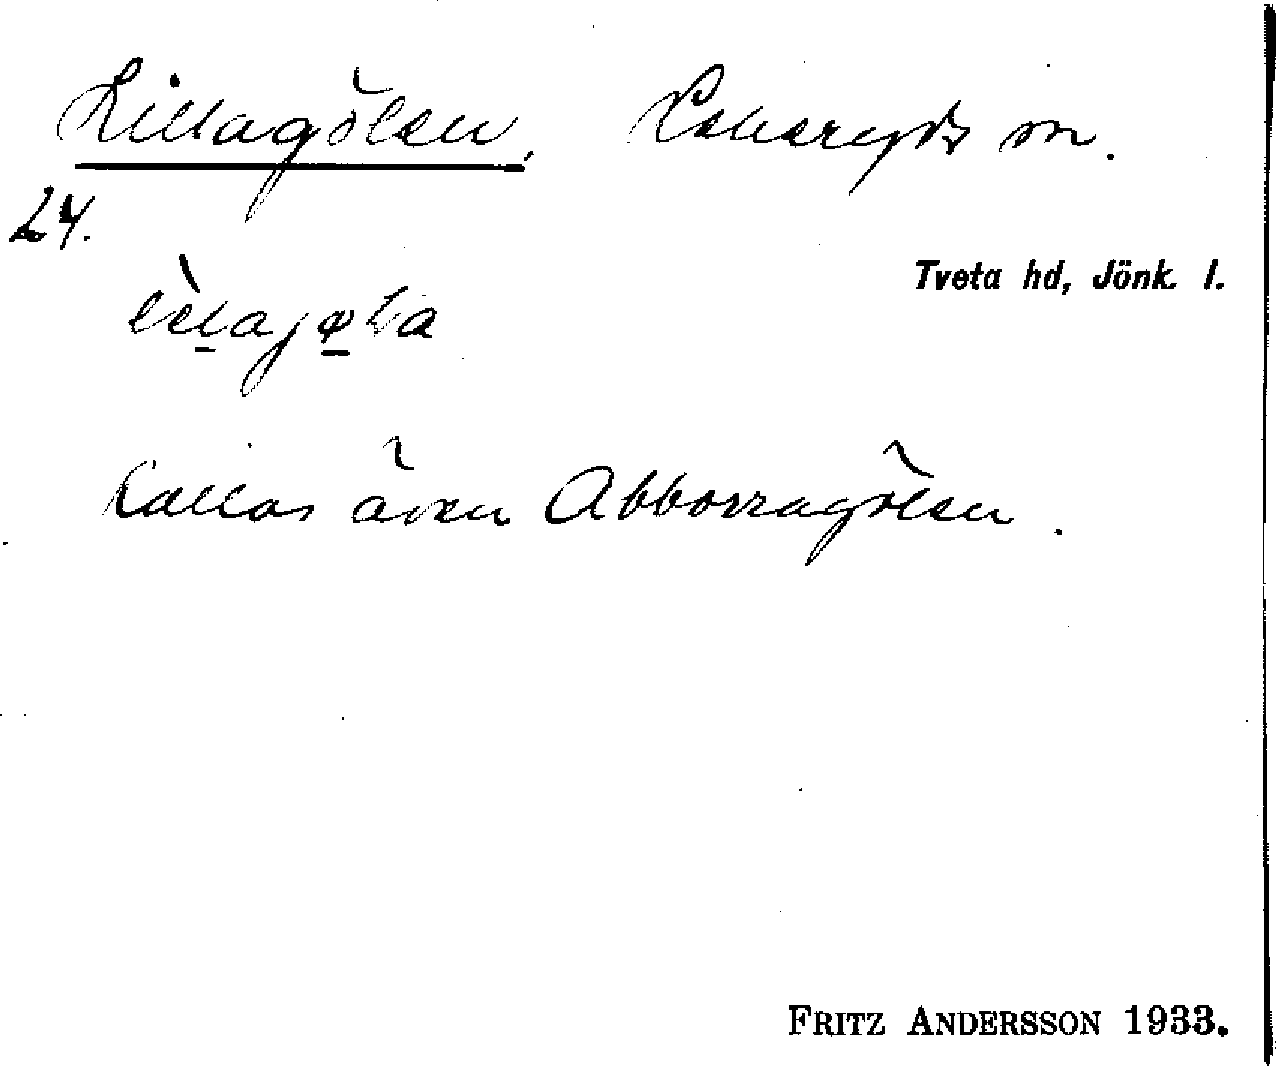 Lillagölen, Lekeryds sn.
24.
Tveta hd, Jönk. l.
Kallas även Abborragölen.
FRITZ ANDERSSON 1933.